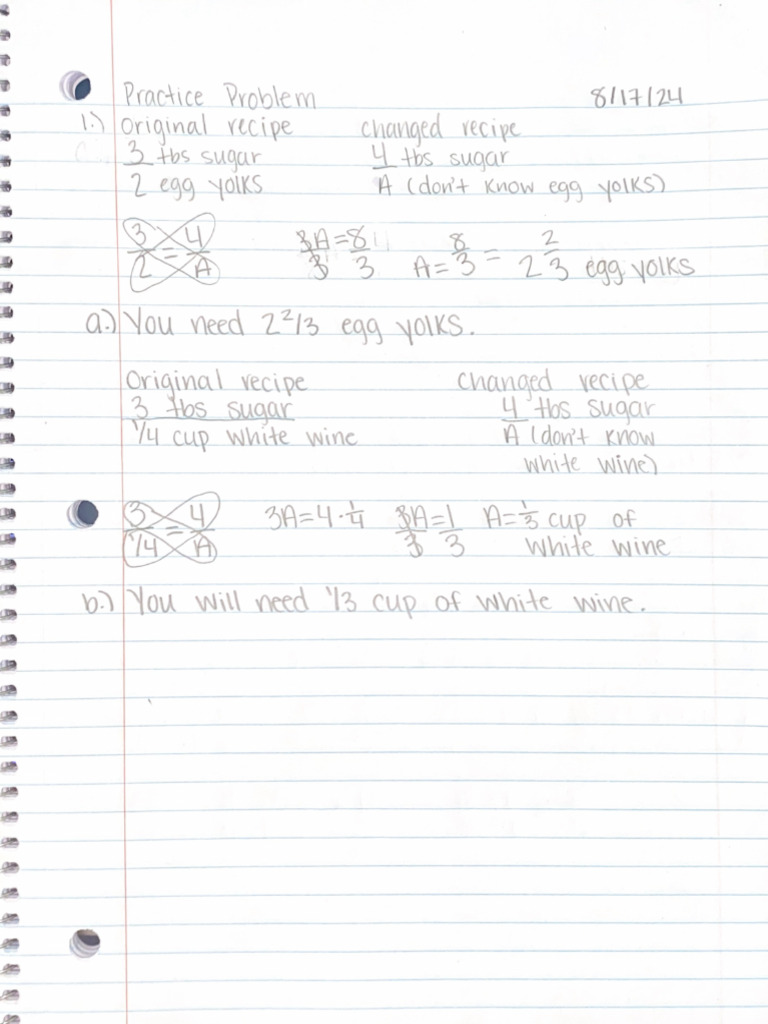 Practice Problem 8/17/24
1.) Original recipe changed recipe
3 tbs sugar 4 tbs sugar
2 egg yolks A (don't know egg yolks)
3/2 = 4/A 3A/3 = 8/3 A = 8/3 = 2 2/3 egg yolks
a.) You need 2 2/3 egg yolks.
Original recipe changed recipe
3 tbs sugar 4 tbs sugar
1/4 cup white wine A (don't know
white wine)
3/1/4 = 4/A 3A = 4 · 1/4 3A/3 = 1/3 A = 1/3 cup of
white wine
b.) You will need 1/3 cup of white wine.